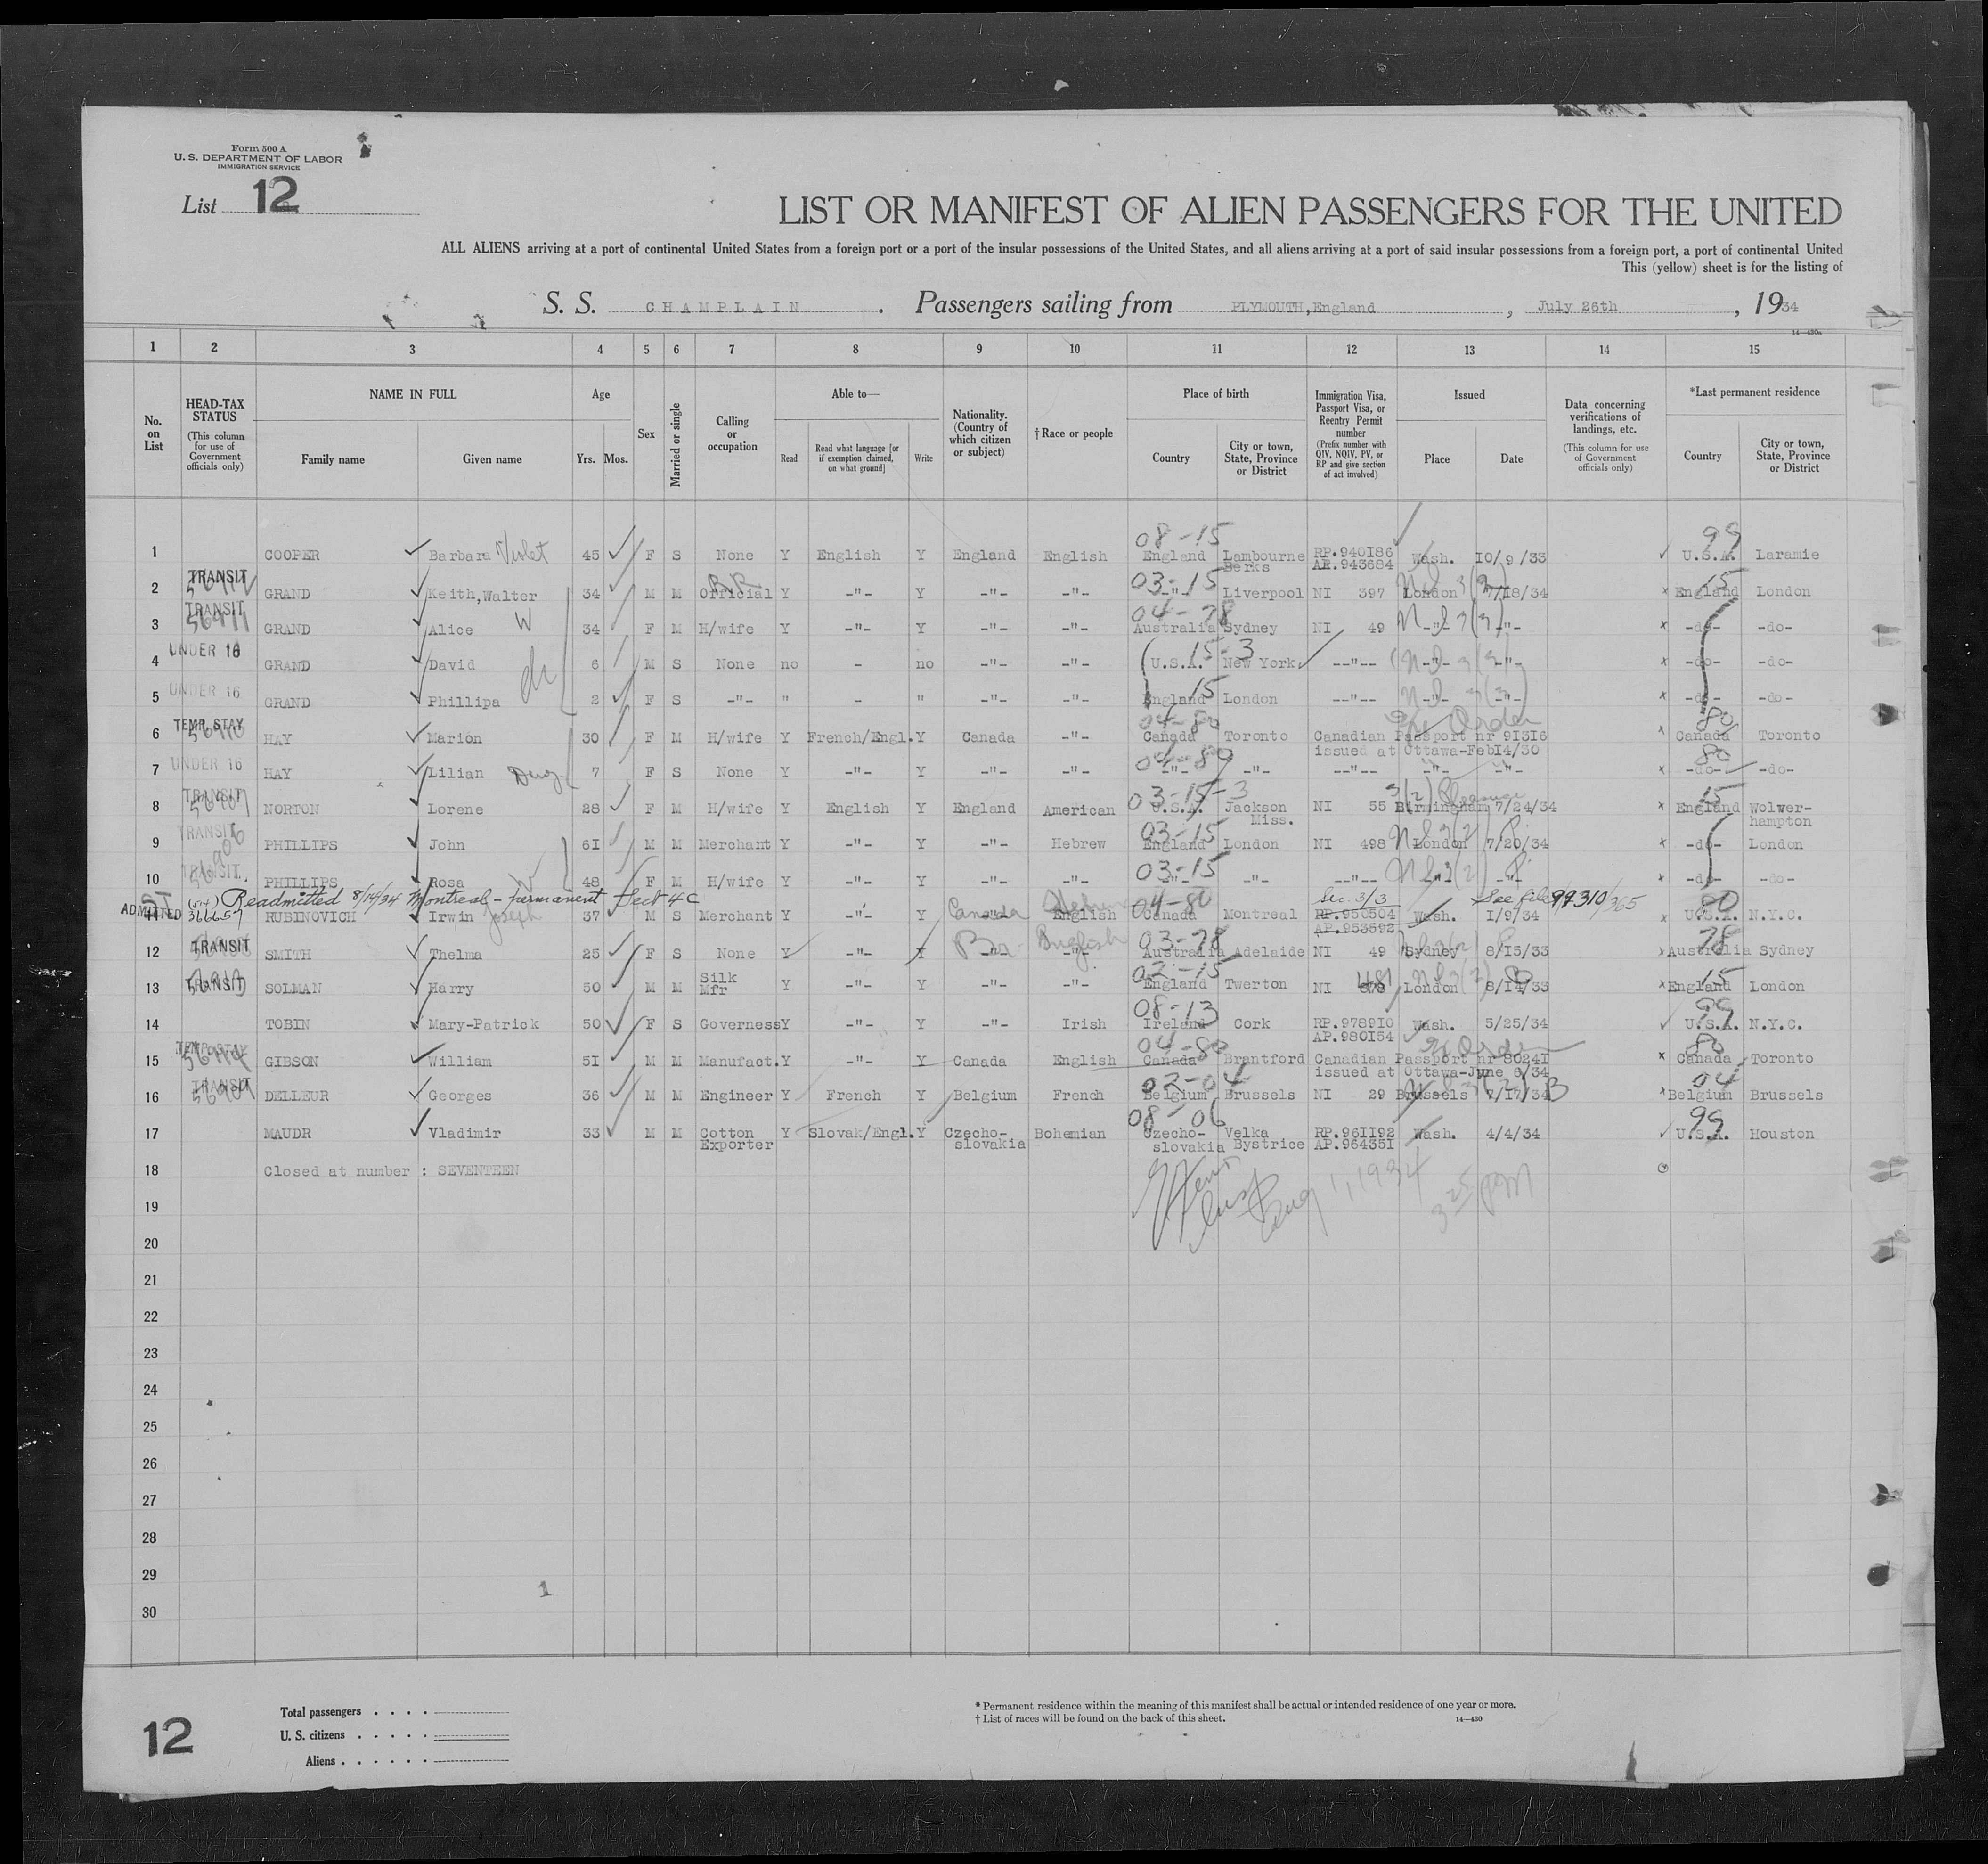 Form 500 A
U. S. DEPARTMENT OF LABOR
IMMIGRATION SERVICE
List 12
LIST OR MANIFEST OF ALIEN PASSENGERS FOR THE UNITED
ALL ALIENS arriving at a port of continental United States from a foreign port or a port of the insular possessions of the United States, and all aliens arriving at a port of said insular possessions from a foreign port, a port of continental United
This (yellow) sheet is for the listing of
S. S. CHAMPLAIN. Passengers sailing from PLYMOUTH, England, July 26th, 1934
14—430a
1 2 3 4 5 6 7 8 9 10 11 12 13 14 15
No. on List
HEAD-TAX STATUS (This column for use of Government officials only)
NAME IN FULL Family name Given name
Age Yrs. Mos.
Sex
Married or single
Calling or occupation
Able to— Read Read what language [or if exemption claimed, on what ground] Write
Nationality. (Country of which citizen or subject)
† Race or people
Place of birth Country City or town, State, Province or District
Immigration Visa, Passport Visa, or Reentry Permit number (Prefix number with QIV, NQIV, PV, or RP and give section of act involved)
Issued Place Date
Data concerning verifications of landings, etc. (This column for use of Government officials only)
*Last permanent residence Country City or town, State, Province or District
08-15 99
1 COOPER Barbara Violet 45 F S None Y English Y England English England Lambourne Berks RP.940186 AP.943684 Wash. 10/9/33 U.S.A. Laramie
03-15 15
2 TRANSIT GRAND Keith,Walter 34 M M RR Official Y -"- Y -"- -"- -"- Liverpool NI 397 London 7/18/34 England London
04-78
3 TRANSIT GRAND Alice W 34 F M H/wife Y -"- Y -"- -"- Australia Sydney NI 49 -"- -"- -do- -do-
15-3
4 UNDER 16 GRAND David 6 M S None no - no -"- -"- U.S.A. New York --"-- -"- -"- -do- -do-
15
5 UNDER 16 GRAND Phillipa 2 F S -"- " - " -"- -"- England London --"-- -"- -"- -do- -do-
04-80 80
6 TEMP. STAY HAY Marion 30 F M H/wife Y French/Engl. Y Canada -"- Canada Toronto Canadian Passport nr 91316 issued at Ottawa-Feb14/30 Canada Toronto
04-80 80
7 UNDER 16 HAY Lilian 7 F S None Y -"- Y -"- -"- -"- -"- --"-- -"- -"- -do- -do-
03-15-3 15
8 TRANSIT NORTON Lorene 28 F M H/wife Y English Y England American U.S.A. Jackson Miss. NI 55 Birmingham 7/24/34 England Wolwer-hampton
03-15
9 TRANSIT PHILLIPS John 61 M M Merchant Y -"- Y -"- Hebrew England London NI 498 London 7/20/34 -do- London
03-15
10 TRANSIT PHILLIPS Rosa W 48 F M H/wife Y -"- Y -"- -"- -"- -"- --"-- -"- -"- -do- -do-
Readmitted 8/14/34 Montreal - permanent Sect 4C
Canada Hebrew 04-80 Sec. 3/3 See file 99310/365 80
11 ADMITTED 366657 RUBINOVICH Irwin Joseph 37 M S Merchant Y -"- Y -"- English Canada Montreal RP.950504 AP.953592 Wash. 1/9/34 U.S.A. N.Y.C.
English 03-78 78
12 TRANSIT SMITH Thelma 25 F S None Y -"- Y -"- -"- Australia Adelaide NI 49 Sydney 8/15/33 Australia Sydney
02-15 15
13 TRANSIT SOLMAN Harry 50 M M Silk Mfr Y -"- Y -"- -"- England Twerton NI 481 London 8/14/33 England London
08-13 99
14 TOBIN Mary-Patrick 50 F S Governess Y -"- Y -"- Irish Ireland Cork RP.978910 AP.980154 Wash. 5/25/34 U.S.A. N.Y.C.
04-80 80
15 TEMP. STAY GIBSON William 51 M M Manufact. Y -"- Y Canada English Canada Brantford Canadian Passport nr 80241 issued at Ottawa-June 8/34 Canada Toronto
02-04 04
16 TRANSIT DELLEUR Georges 36 M M Engineer Y French Y Belgium French Belgium Brussels NI 29 Brussels 7/17/34 Belgium Brussels
08-06 99
17 MAUDR Vladimir 33 M M Cotton Exporter Y Slovak/Engl. Y Czecho-slovakia Bohemian Czecho-slovakia Velka Bystrice RP.961192 AP.964351 Wash. 4/4/34 U.S.A. Houston
18 Closed at number : SEVENTEEN
Aug 1, 1934 3 25 PM
19
20
21
22
23
24
25
26
27
28
29
30
1
Total passengers . . . .
U. S. citizens . . . . .
Aliens . . . . . .
12
* Permanent residence within the meaning of this manifest shall be actual or intended residence of one year or more.
† List of races will be found on the back of this sheet.
14—430